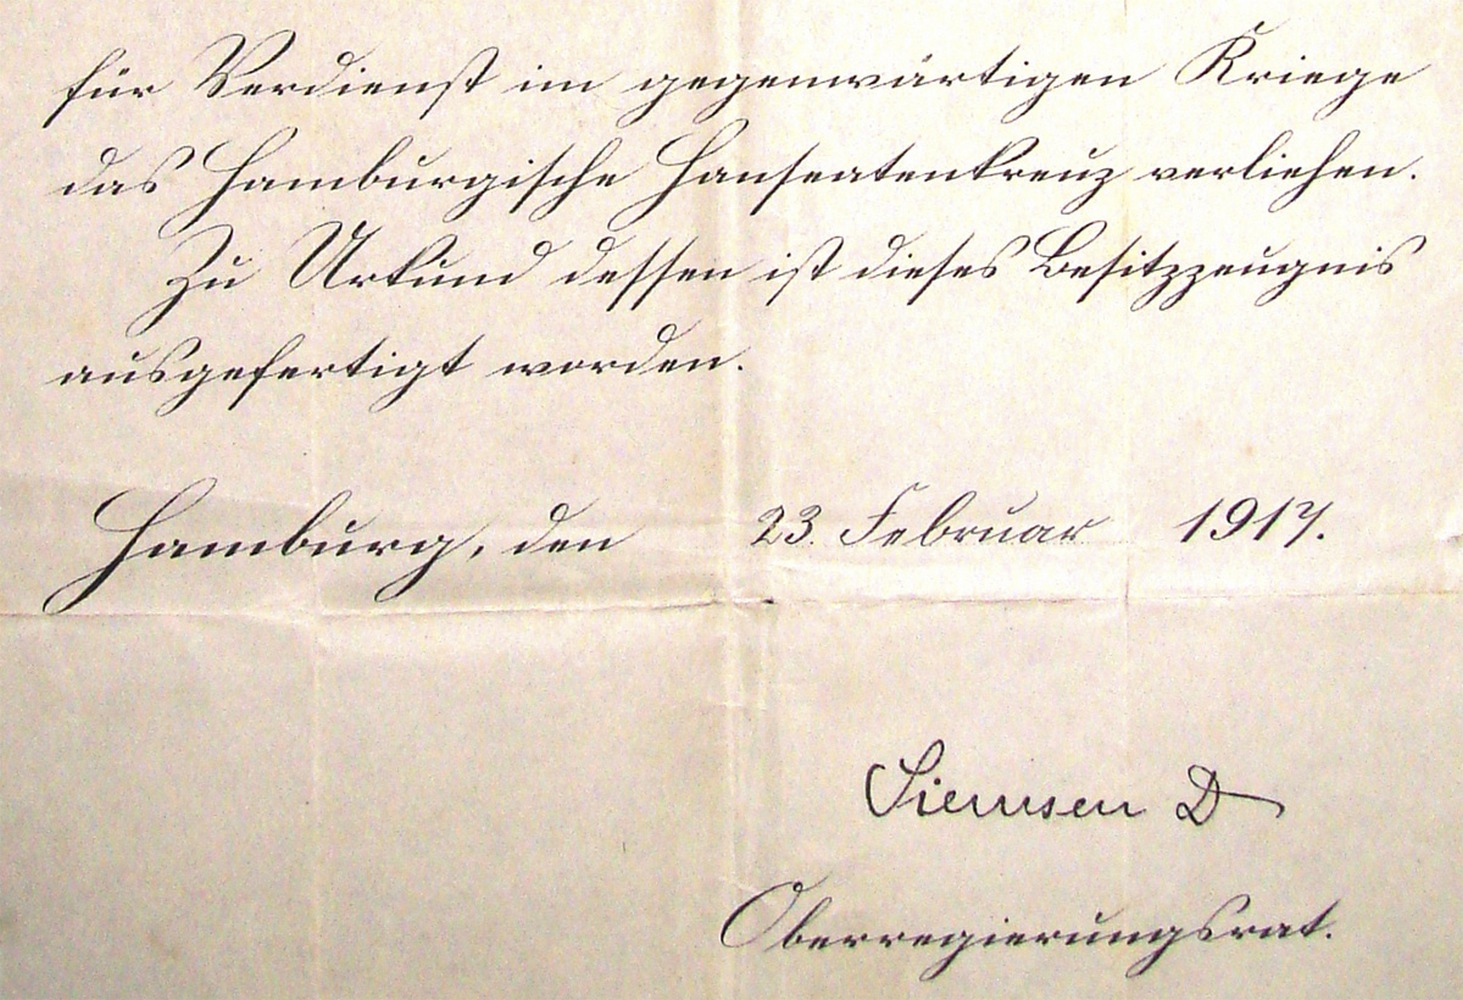 für Verdienst im gegenwärtigen Kriege
das Hamburgische Hanseatenkreuz verliehen.
Zu Urkund dessen ist dieses Besitzzeugnis
ausgefertigt worden.
Hamburg, den 23. Februar 1917.
Siemsen D
Oberregierungsrat.